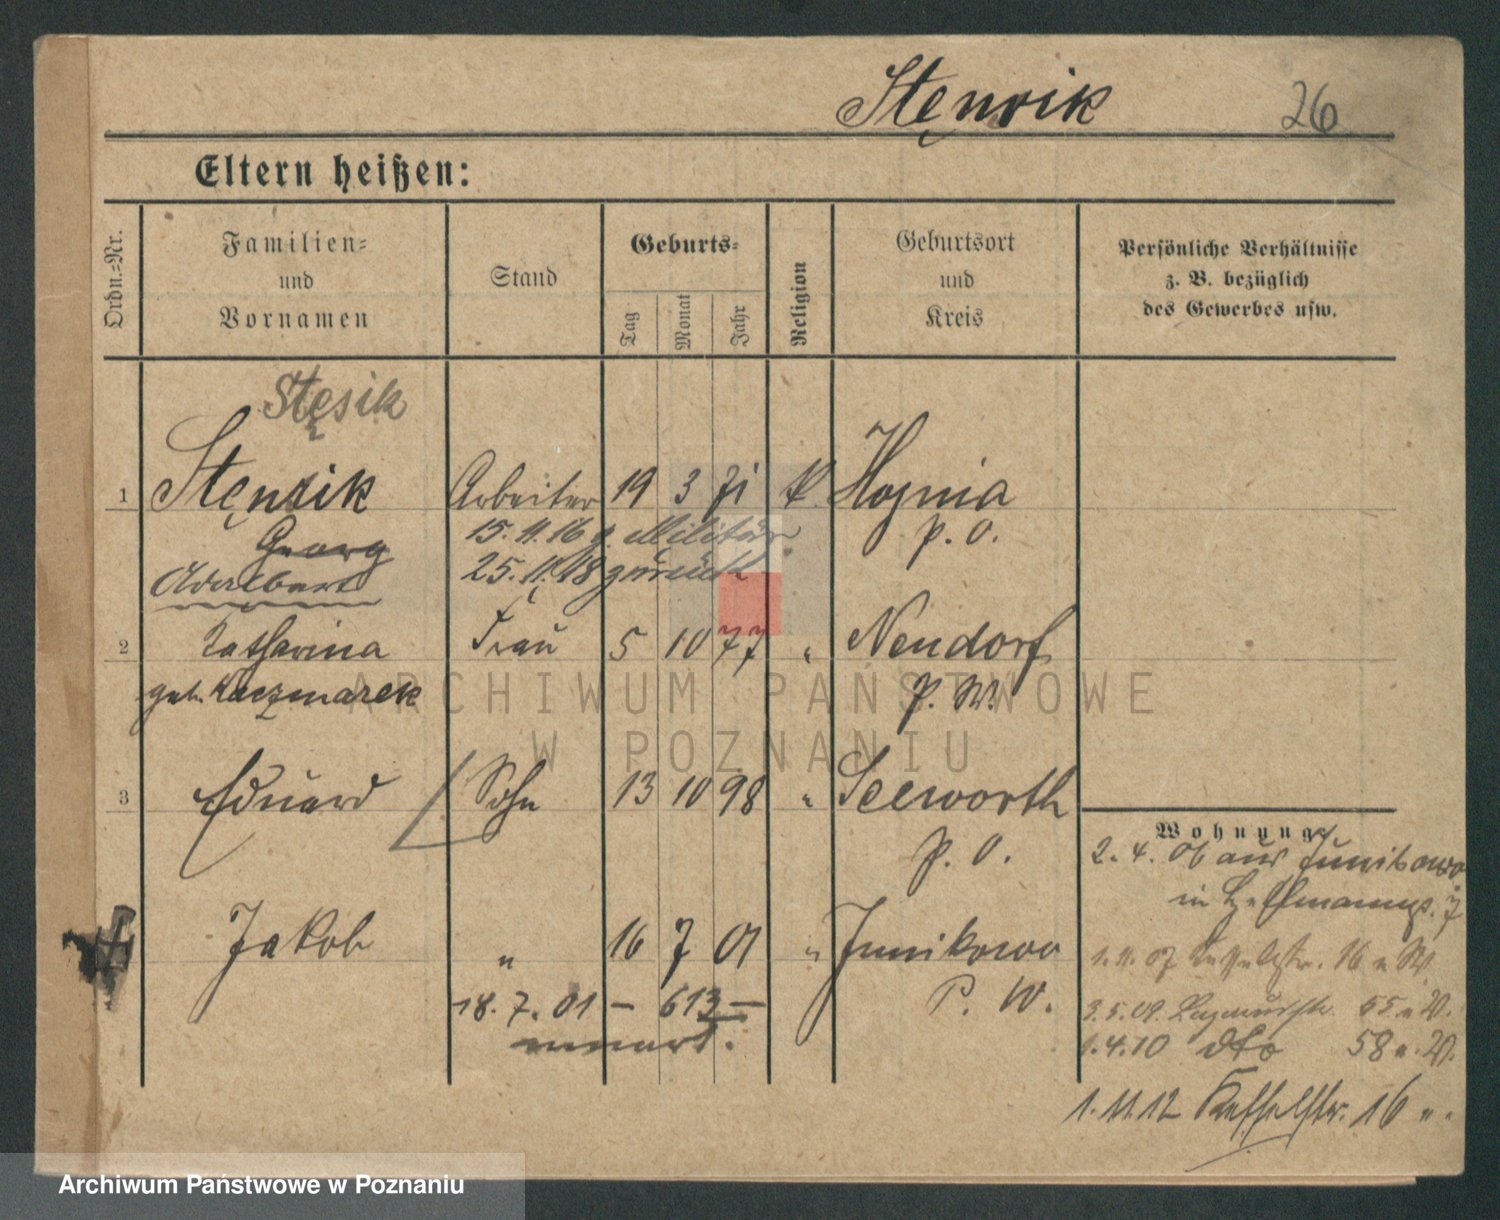 Stęnsik 26
Eltern heißen:
Ordn.=Nr.
Familien=
und
Vornamen
Stand
Geburts=
Tag
Monat
Jahr
Religion
Geburtsort
und
Kreis
Persönliche Verhältnisse
z. B. bezüglich
des Gewerbes usw.
Stęsik
1 Stęnsik Arbeiter 19 3 71 k. 
Georg 15. 11. 16 z. Militär P. O.
Adalbert 25. 11. 18 zurück
2 Katharina Frau 5 10 77 " Neudorf
geb. Kaczmarek P. W.
3 Eduard Sohn 13 10 98 " Seeworth
P. O.
Wohnung
2. 4. 06 aus Junikowo
in 7
Jakob " 16 7 01 " Junikowo
P. W.
1. 11. 07 Kesselstr. 16 W
18. 7. 01 – 613 –
3. 5. 09. 55. W.
1. 4. 10 dto 58 W.
1. 11. 12 Kesselstr. 16 "
ARCHIWUM PAŃSTWOWE
W POZNANIU
Archiwum Państwowe w Poznaniu